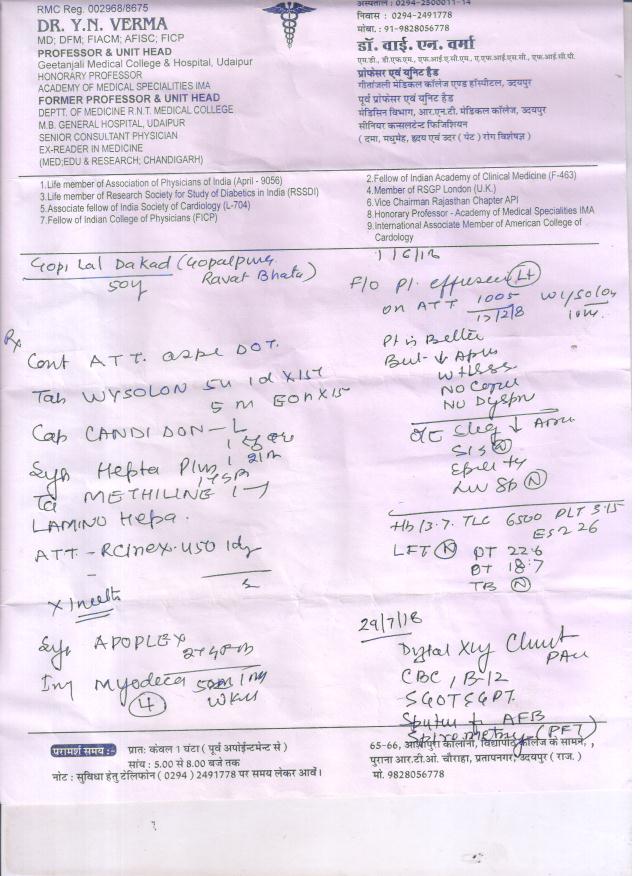 RMC Reg. 002968/8675
DR. Y.N. VERMA
MD; DFM; FIACM; AFISC; FICP
PROFESSOR & UNIT HEAD
Geetanjali Medical College & Hospital, Udaipur
HONORARY PROFESSOR
ACADEMY OF MEDICAL SPECIALITIES IMA
FORMER PROFESSOR & UNIT HEAD
DEPTT. OF MEDICINE R.N.T. MEDICAL COLLEGE
M.B. GENERAL HOSPITAL, UDAIPUR
SENIOR CONSULTANT PHYSICIAN
EX-READER IN MEDICINE
(MED;EDU & RESEARCH; CHANDIGARH)
अस्पताल : 0294-2500011-14
निवास : 0294-2491778
मोबा. : 91-9828056778
डॉ. वाई. एन. वर्मा
एम.डी., डी.एफ.एम., एफ.आई.ए.सी.एम., ए.एफ.आई.एस.सी., एफ.आई.सी.पी.
प्रोफेसर एवं यूनिट हैड
गीतांजली मेडिकल कॉलेज एण्ड हॉस्पीटल, उदयपुर
पूर्व प्रोफेसर एवं यूनिट हैड
मेडिसिन विभाग, आर.एन.टी. मेडिकल कॉलेज, उदयपुर
सीनियर कन्सलटेन्ट फिजिशियन
( दमा, मधुमेह, हृदय एवं उदर ( पेट ) रोग विशेषज्ञ )
1.Life member of Association of Physicians of India (April - 9056)
3.Life member of Research Society for Study of Diabetics in India (RSSDI)
5.Associate fellow of India Society of Cardiology (L-704)
7.Fellow of Indian College of Physicians (FICP)
2.Fellow of Indian Academy of Clinical Medicine (F-463)
4.Member of RSGP London (U.K.)
6.Vice Chairman Rajasthan Chapter API
8.Honorary Professor - Academy of Medical Specialities IMA
9.International Associate Member of American College of
Cardiology
Gopi Lal Dakad (Gopalpura
Ravat Bhata)
50y
1/6/18
F/o Pl. effusion Lt
on ATT 1005 Wysolon
17/2/8
Pt is Better
But ↓
wt loss
No
No
↓
SIS N
N
Hb 13.7. TLC 6500 PLT 3.15
ESR 26
LFT N PT 22.6
OT 18.7
TB N
Rx
Cont ATT. as per DOT.
Tab WYSOLON 5 1d X 15
5 m EOD X 15
Cap CANDIDON-L
Syp Hepta Plus
METHILINE
LAMINO Hepa.
ATT - RCinex
Syp APOPLEX
Inj Myodeca
4
29/7/18
Digital Xray Chest
PA
CBC, B-12
SGOT SGPT.
Sputum AFB
Spirometry (PFT)
परामर्श समय :-
प्रात: केवल 1 घंटा ( पूर्व अपोईन्टमेन्ट से )
सांय : 5.00 से 8.00 बजे तक
नोट : सुविधा हेतु टेलिफोन ( 0294 ) 2491778 पर समय लेकर आवें।
65-66, आशापुरा कॉलोनी, विद्यापीठ कॉलेज के सामने,
पुराना आर.टी.ओ. चौराहा, प्रतापनगर, उदयपुर ( राज. )
मो. 9828056778